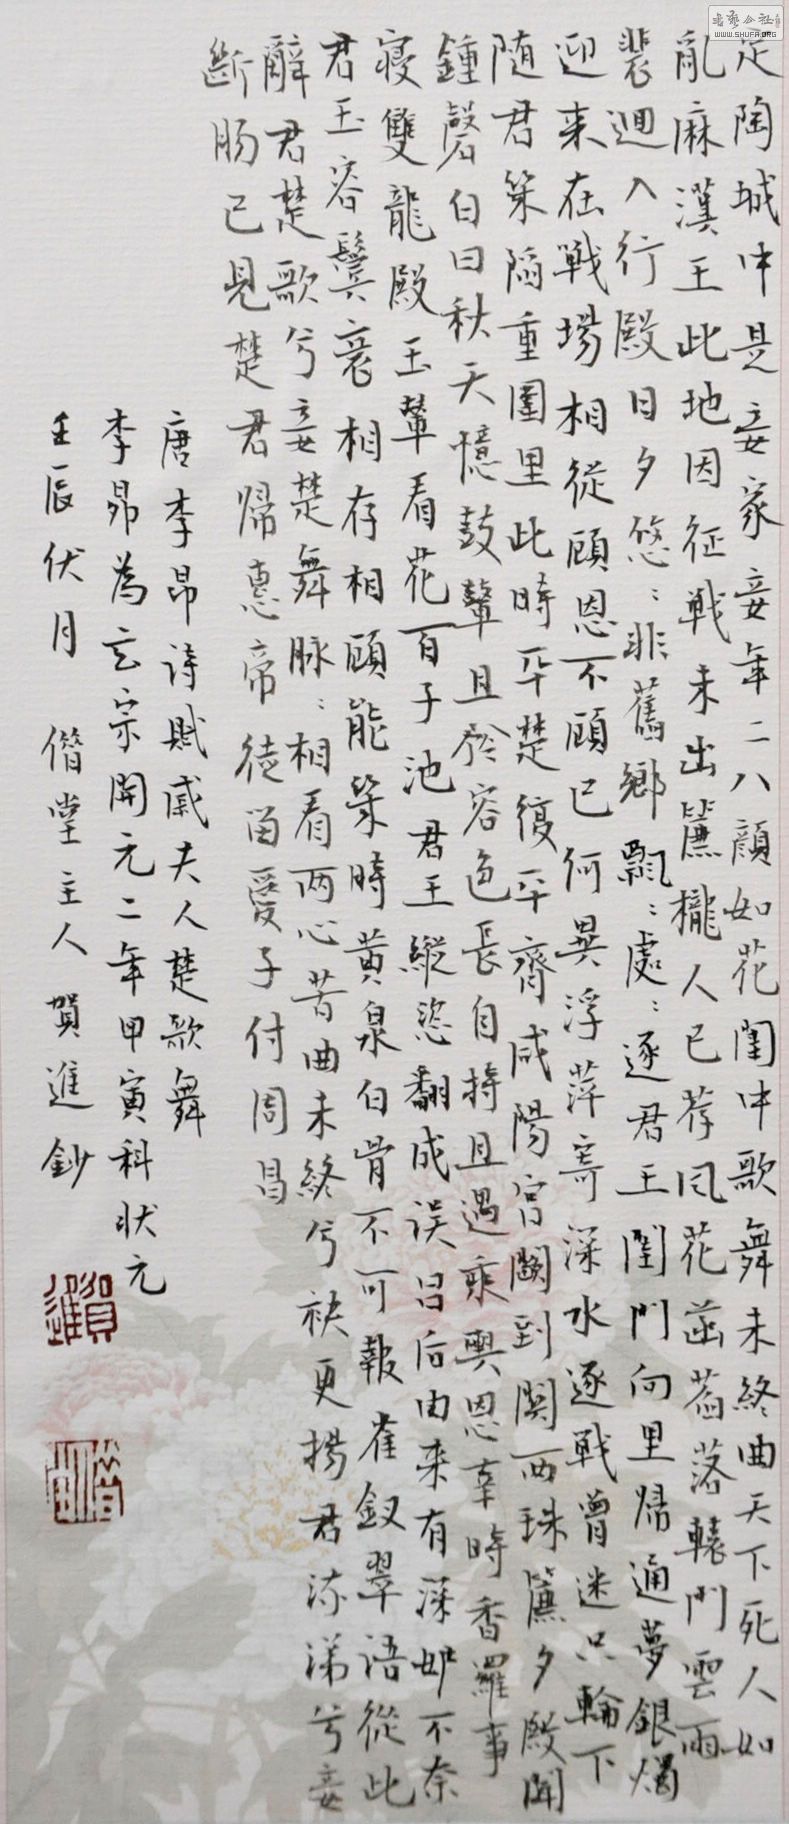 定陶城中是妾家妾年二八顏如花閨中歌舞未終曲天下死人如
亂麻漢王此地因征戰未出簾櫳人已荐风花菡萏落轅門雲雨
裴迴入行殿日夕悠悠非舊鄉飄飄處處逐君王閨門向里歸通夢銀燭
迎来在戰場相從顧恩不顧己何異浮萍寄深水逐戰曾迷只輪下
随君策陷重圍里此時平楚復平齊咸陽宫闕到関西珠簾夕殿聞
鍾磬白日秋天憶鼓鼙且矜容色長自持且遇乘輿恩幸時香羅事
寝雙龍殿玉輦看花百子池君王縱恣翻成误吕后由来有深妒不奈
君玉容鬓衰相存相顧能幾時黄泉白骨不可報雀釵翠語從此
辭君楚歌兮妾楚舞脉脉相看两心苦曲未終兮袂更揚君流涕兮妾
斷肠已見楚君歸惠帝徒留爱子付周昌
唐李昂詩賦戚夫人楚歌舞
李昂為玄宗開元二年甲寅科状元
壬辰伏月 僭堂主人賀進鈔
賀進
WWW.SHUFA.ORG